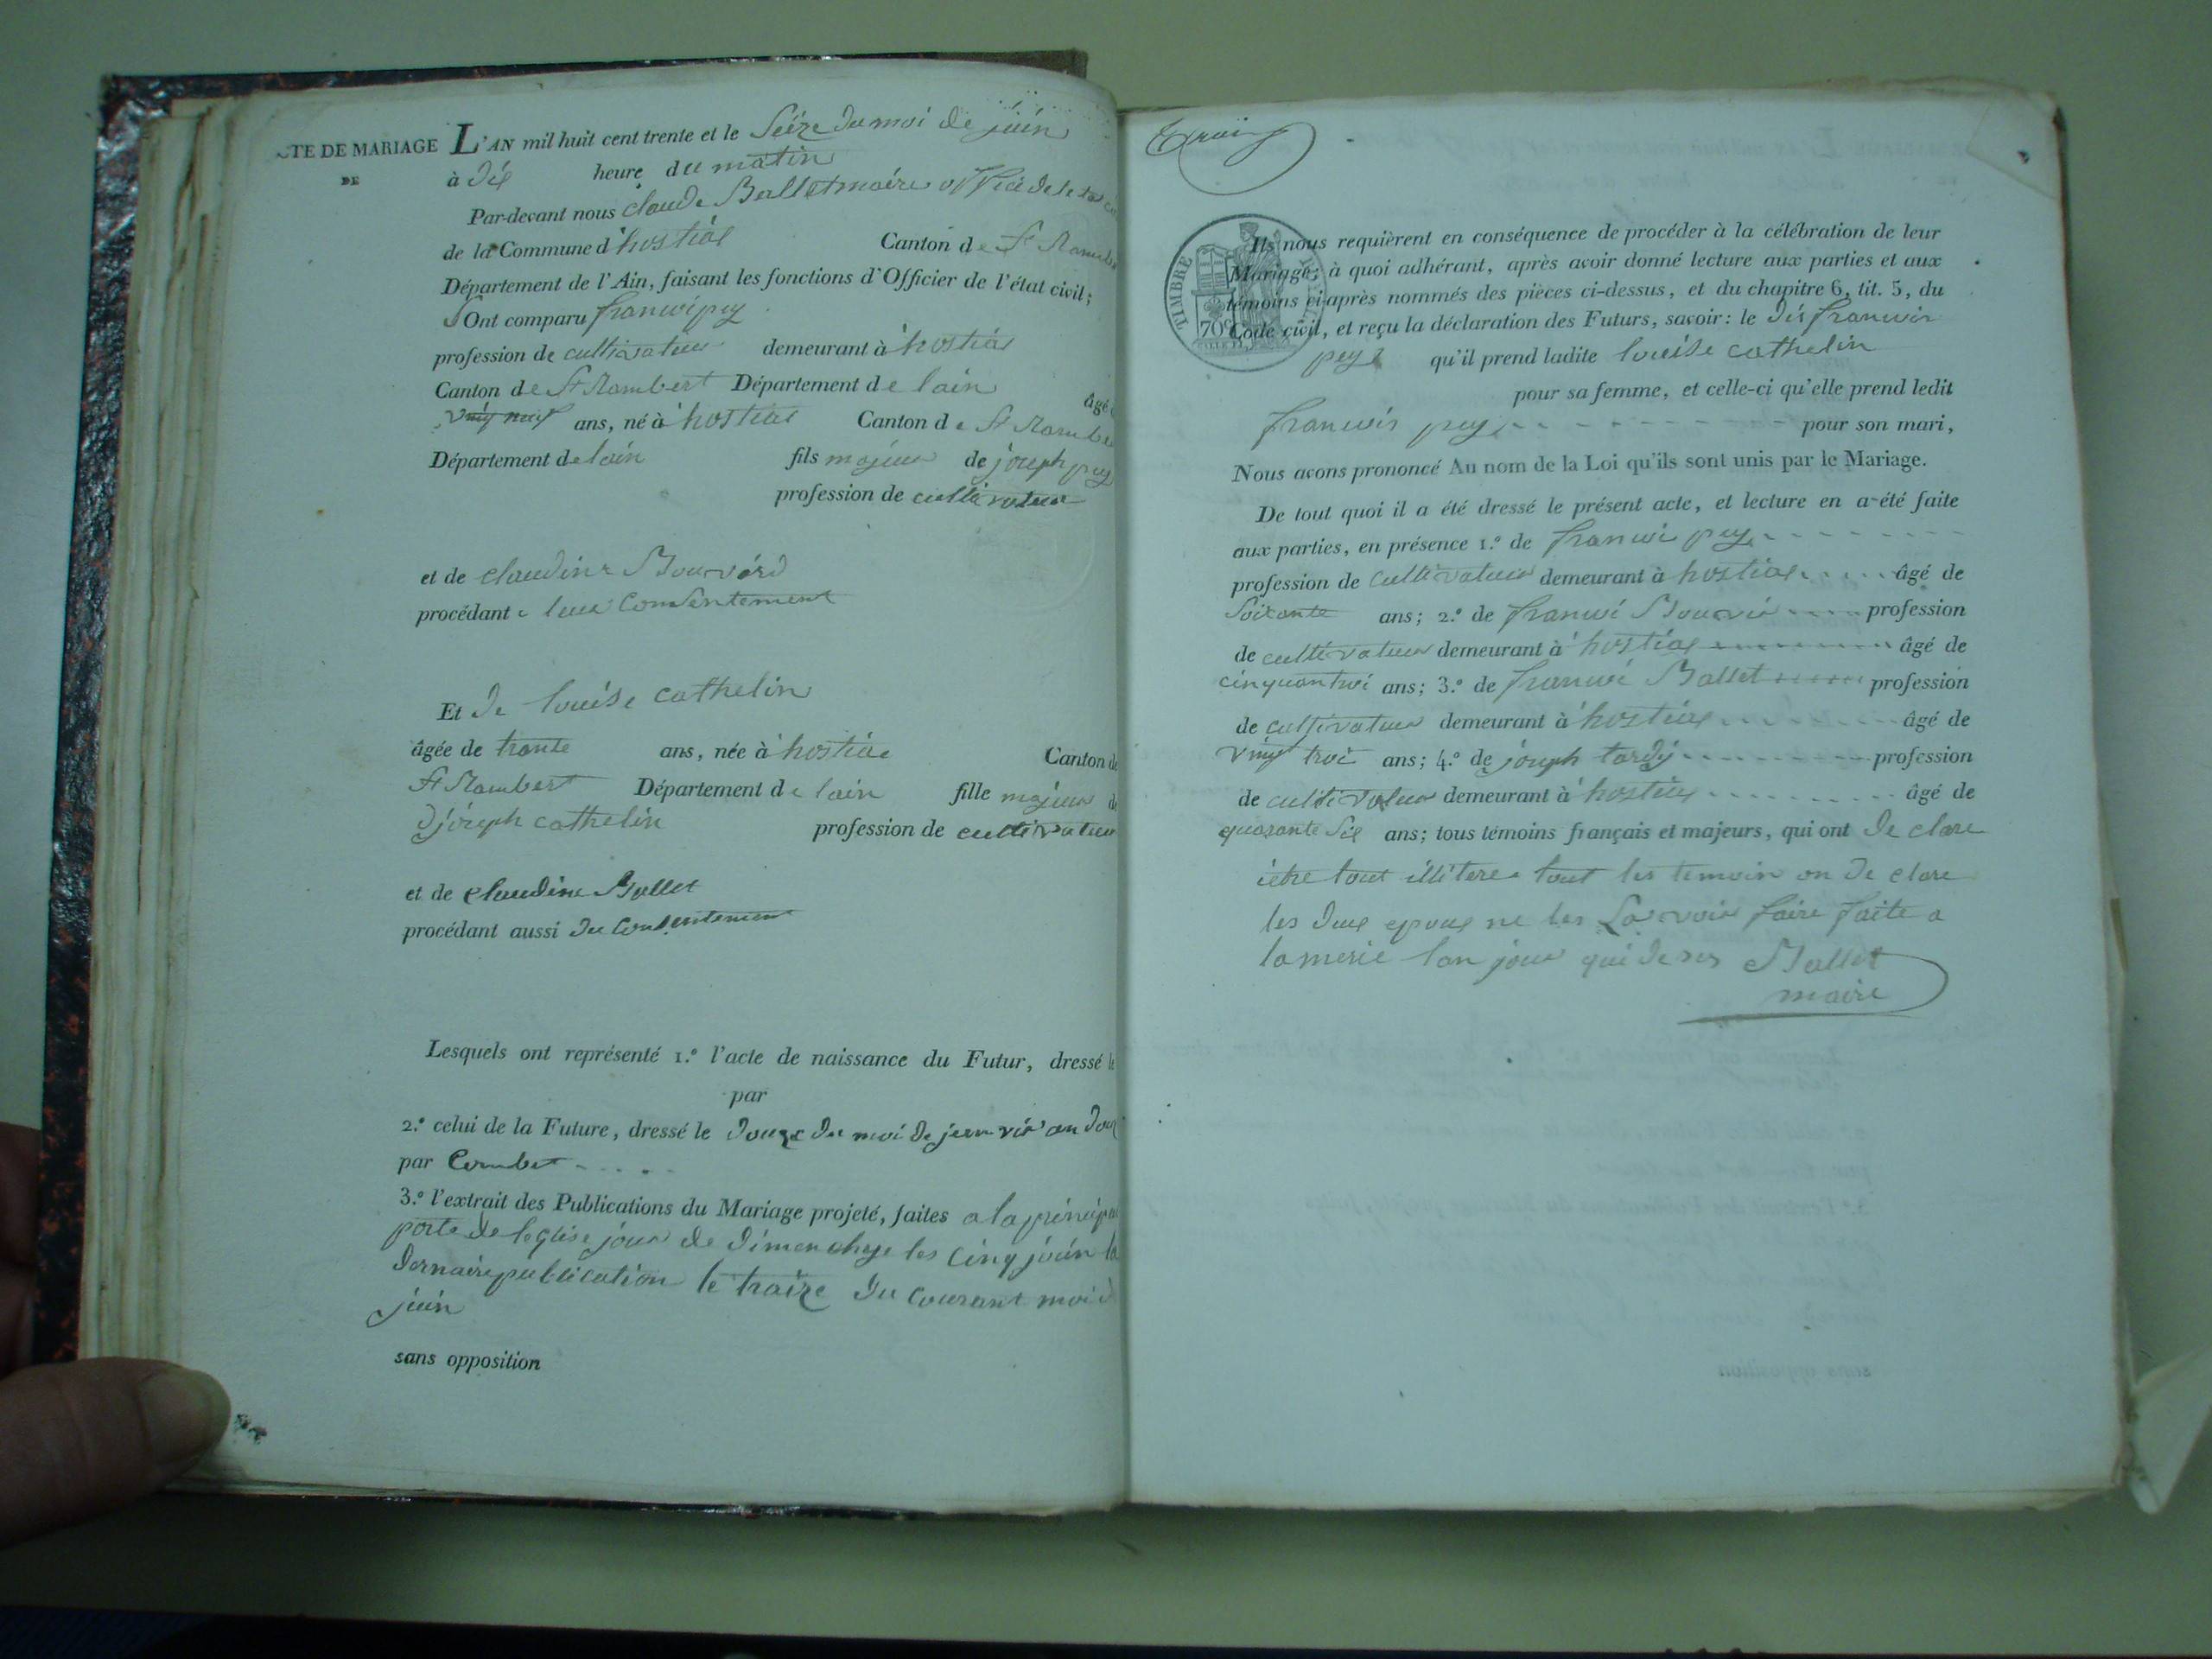 TE DE MARIAGE
DE
L'AN mil huit cent trente et le Seize du moi de juin
à dix heure du matin
Par-devant nous claude Ballet maire
de la Commune d'hostias Canton de St Rambe
Département de l'Ain, faisant les fonctions d'Officier de l'état civil;
Ont comparu francois pey
profession de cultivateur demeurant à hostias
Canton de St Rambert Département de lain âgé
vingt neuf ans, né à hostias Canton de St Rambe
Département de lain fils majeur de joseph pey
profession de cultivateur
et de claudine
procédant e leur Consentement
Et de louise cathelin
âgée de trante ans, née à hostias Canton de
St Rambert Département de lain fille majeur de
joseph cathelin profession de cultivateur
et de claudine Ballet
procédant aussi du Consentement
Lesquels ont représenté 1.º l'acte de naissance du Futur, dressé le
par
2.º celui de la Future, dressé le douze du moi de jeanvié an
par Combet
3.º l'extrait des Publications du Mariage projeté, faites a la principa
porte de leglise jour de dimenchye les cinq jouin la
darnaire publication le traize du courant moi d
juin
sans opposition
TIMBRE
70c
Ils nous requièrent en conséquence de procéder à la célébration de leur
Mariage; à quoi adhérant, après avoir donné lecture aux parties et aux
témoins ci-après nommés des pièces ci-dessus, et du chapitre 6, tit. 5, du
Code civil, et reçu la déclaration des Futurs, savoir: le dis francois
pey qu'il prend ladite louise cathelin
pour sa femme, et celle-ci qu'elle prend ledit
francois pey pour son mari,
Nous avons prononcé Au nom de la Loi qu'ils sont unis par le Mariage.
De tout quoi il a été dressé le présent acte, et lecture en a été faite
aux parties, en présence 1.º de francoi pey
profession de cultivateur demeurant à hostias âgé de
Soixante ans; 2.º de francoi profession
de cultivateur demeurant à hostias âgé de
ans; 3.º de francoi Ballet profession
de cultivateur demeurant à hostias âgé de
vingt troi ans; 4.º de joseph tardy profession
de cultivateur demeurant à hostias âgé de
quarante six ans; tous témoins français et majeurs, qui ont de clare
ietre tout illitere tout les temoin on de clare
les deux epoux ne les Savoir faire faite a
la merie lan jour que desus Ballet
maire